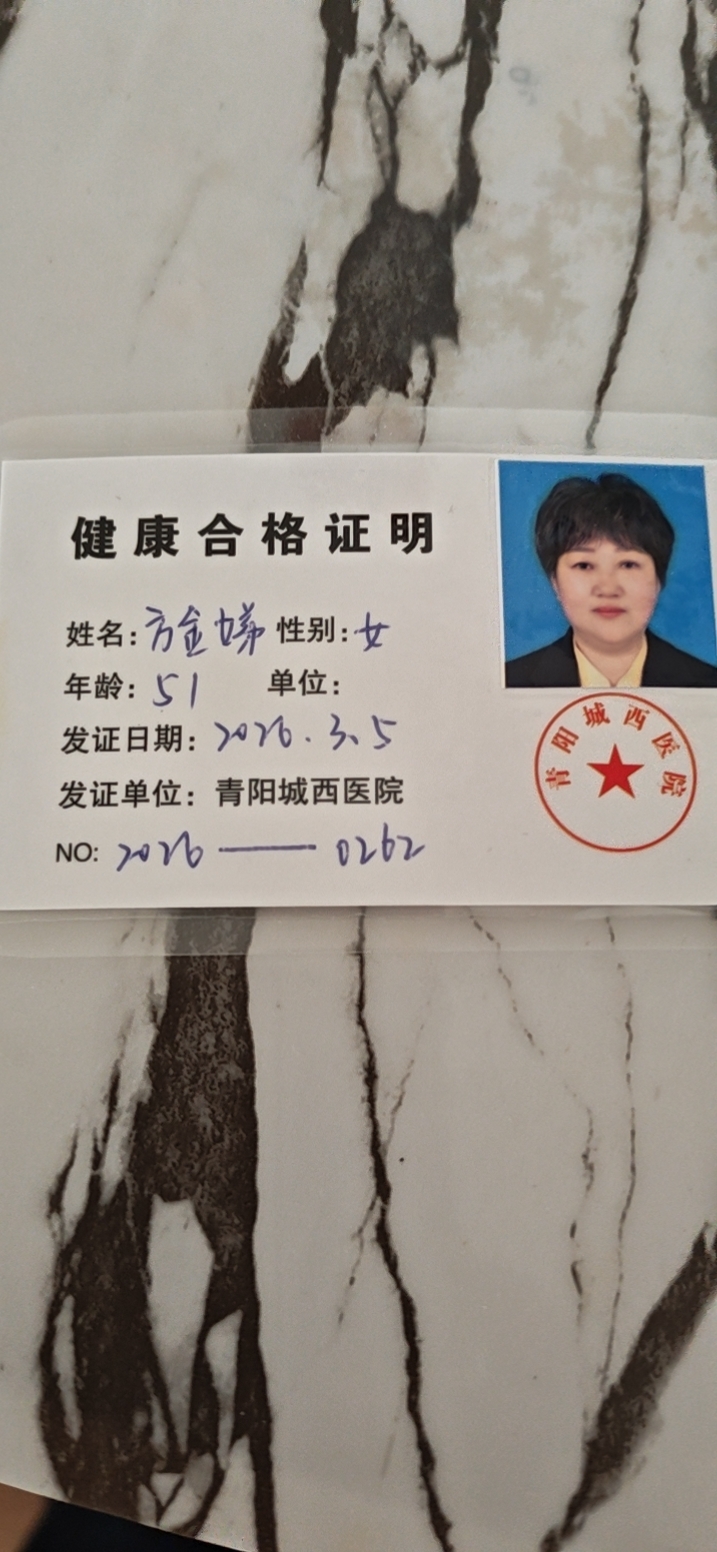 健康合格证明
姓名:方金娣 性别:女
年龄:51 单位:
发证日期:2026.3.5
发证单位:青阳城西医院
NO: 2026——0262
青阳城西医院